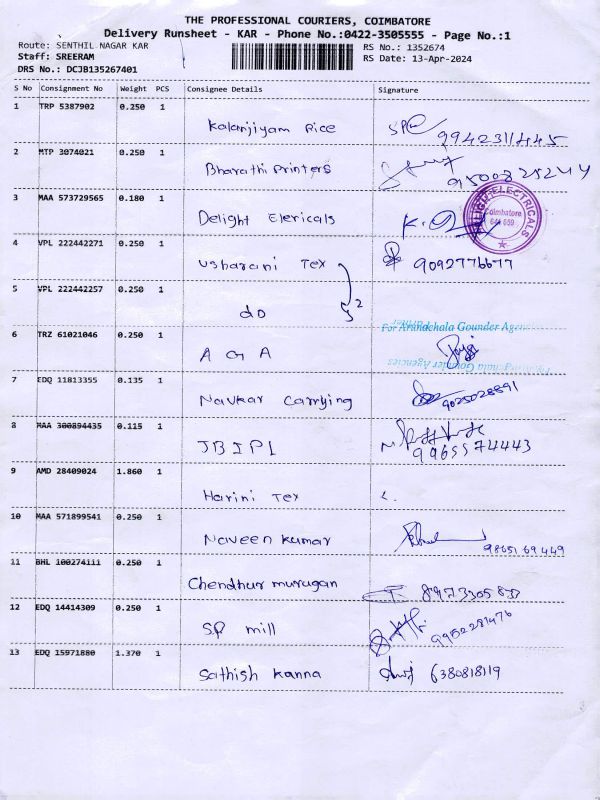 THE PROFESSIONAL COURIERS, COIMBATORE
Delivery Runsheet - KAR - Phone No.:0422-3505555 - Page No.:1
Route: SENTHIL NAGAR KAR
RS No.: 1352674
Staff: SREERAM
RS Date: 13-Apr-2024
DRS No.: DCJB135267401
S No Consignment No Weight PCS Consignee Details Signature
1 TRP 5387902 0.250 1
Kalanjiyam Rice 9942311445
2 MTP 3074021 0.250 1
Bharathi Printers
3 MAA 573729565 0.180 1
Delight Elericals
ELECTRICALS
Coimbatore
641 659
4 VPL 222442271 0.250 1
Usharani Tex 9092776677
5 VPL 222442257 0.250 1
do 2
For Arundchala Gounder Agencies
6 TRZ 61021046 0.250 1
A G A
7 EDQ 11813355 0.135 1
Navkar Carrying 9025028891
8 MAA 300894435 0.115 1
JBIPL 9965574443
9 AMD 28409024 1.860 1
Harini Tex
10 MAA 571899541 0.250 1
Naveen Kumar 9865169449
11 BHL 100274111 0.250 1
Chendhur murugan
12 EDQ 14414309 0.250 1
S.P mill 9952281476
13 EDQ 15971880 1.370 1
Sathish Kanna 6380818119